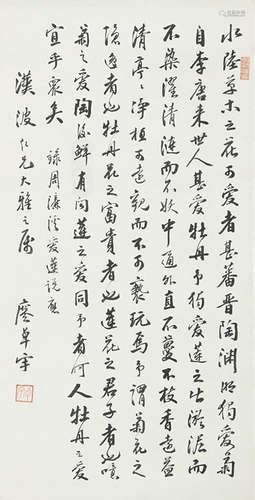 水陸草木之花可愛者甚蕃晉陶淵明獨愛菊
自李唐來世人甚愛牡丹予獨愛蓮之出淤泥而
不染濯清漣而不妖中通外直不蔓不枝香遠益
清亭亭淨植可遠觀而不可褻玩焉予謂菊花之
隱逸者也牡丹花之富貴者也蓮花之君子者也噫
菊之愛陶後鮮有聞蓮之愛同予者何人牡丹之愛
宜乎眾矣 錄周濂溪愛蓮說應
漢波仁兄大雅之屬 廖卓宇